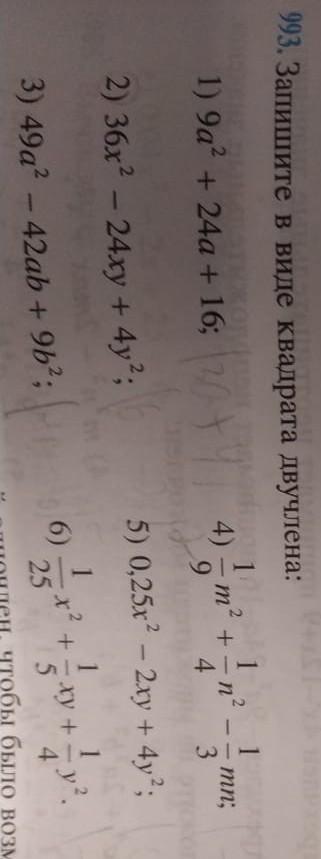 993. Запишите в виде квадрата двучлена:
1) 9a² + 24a + 16;
2) 36x² − 24xy + 4y²;
3) 49a² − 42ab + 9b²;
4) 1/9 m² + 1/4 n² − 1/3 mn;
5) 0,25x² − 2xy + 4y²;
6) 1/25 x² + 1/5 xy + 1/4 y².
чтобы было